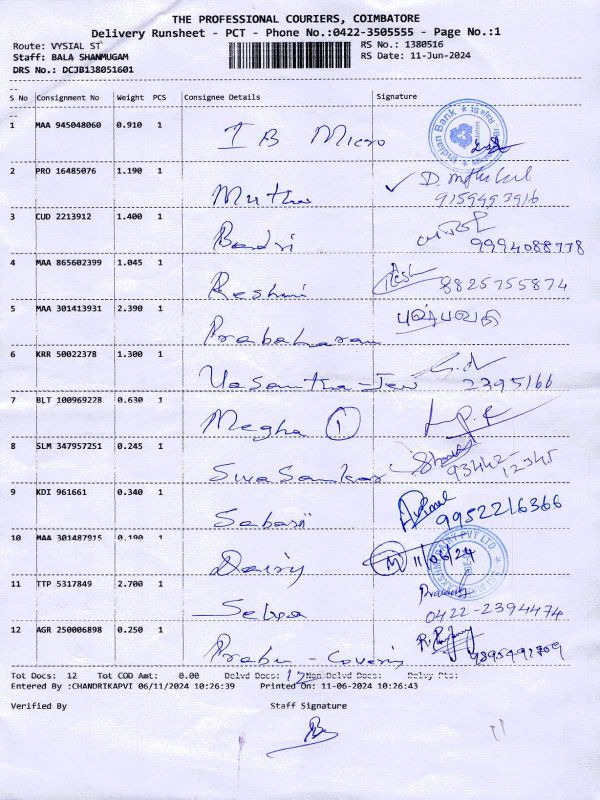 THE PROFESSIONAL COURIERS, COIMBATORE
Delivery Runsheet - PCT - Phone No.:0422-3505555 - Page No.:1
Route: VYSIAL ST RS No.: 1380516
Staff: BALA SHANMUGAM RS Date: 11-Jun-2024
DRS No.: DCJB138051601
S No Consignment No Weight PCS Consignee Details Signature
1 MAA 945048060 0.910 1 IB Micro Indian Bank
2 PRO 16485076 1.190 1 Muthu 9159493916
3 CUD 2213912 1.400 1 Badri 9994088778
4 MAA 865602399 1.045 1 Reshmi 8825755874
5 MAA 301413931 2.390 1 Prabaharan
6 KRR 50022378 1.300 1 Vasantha-Jew 2395166
7 BLT 100969228 0.630 1 Megha 1
8 SLM 347957251 0.245 1 Sivasankar 93442-12345
9 KDI 961661 0.340 1 Sabari 9952216366
10 MAA 301487915 0.190 1 Dairy M 11/06/24
11 TTP 5317849 2.700 1 Selva 0422-2394474
12 AGR 250006898 0.250 1 Prabu - Covering
Tot Docs: 12 Tot COD Amt: 0.00 Delvd Docs: 12 Non Delvd Docs: Delvy Pts:
Entered By :CHANDRIKAPVI 06/11/2024 10:26:39 Printed On: 11-06-2024 10:26:43
Verified By Staff Signature